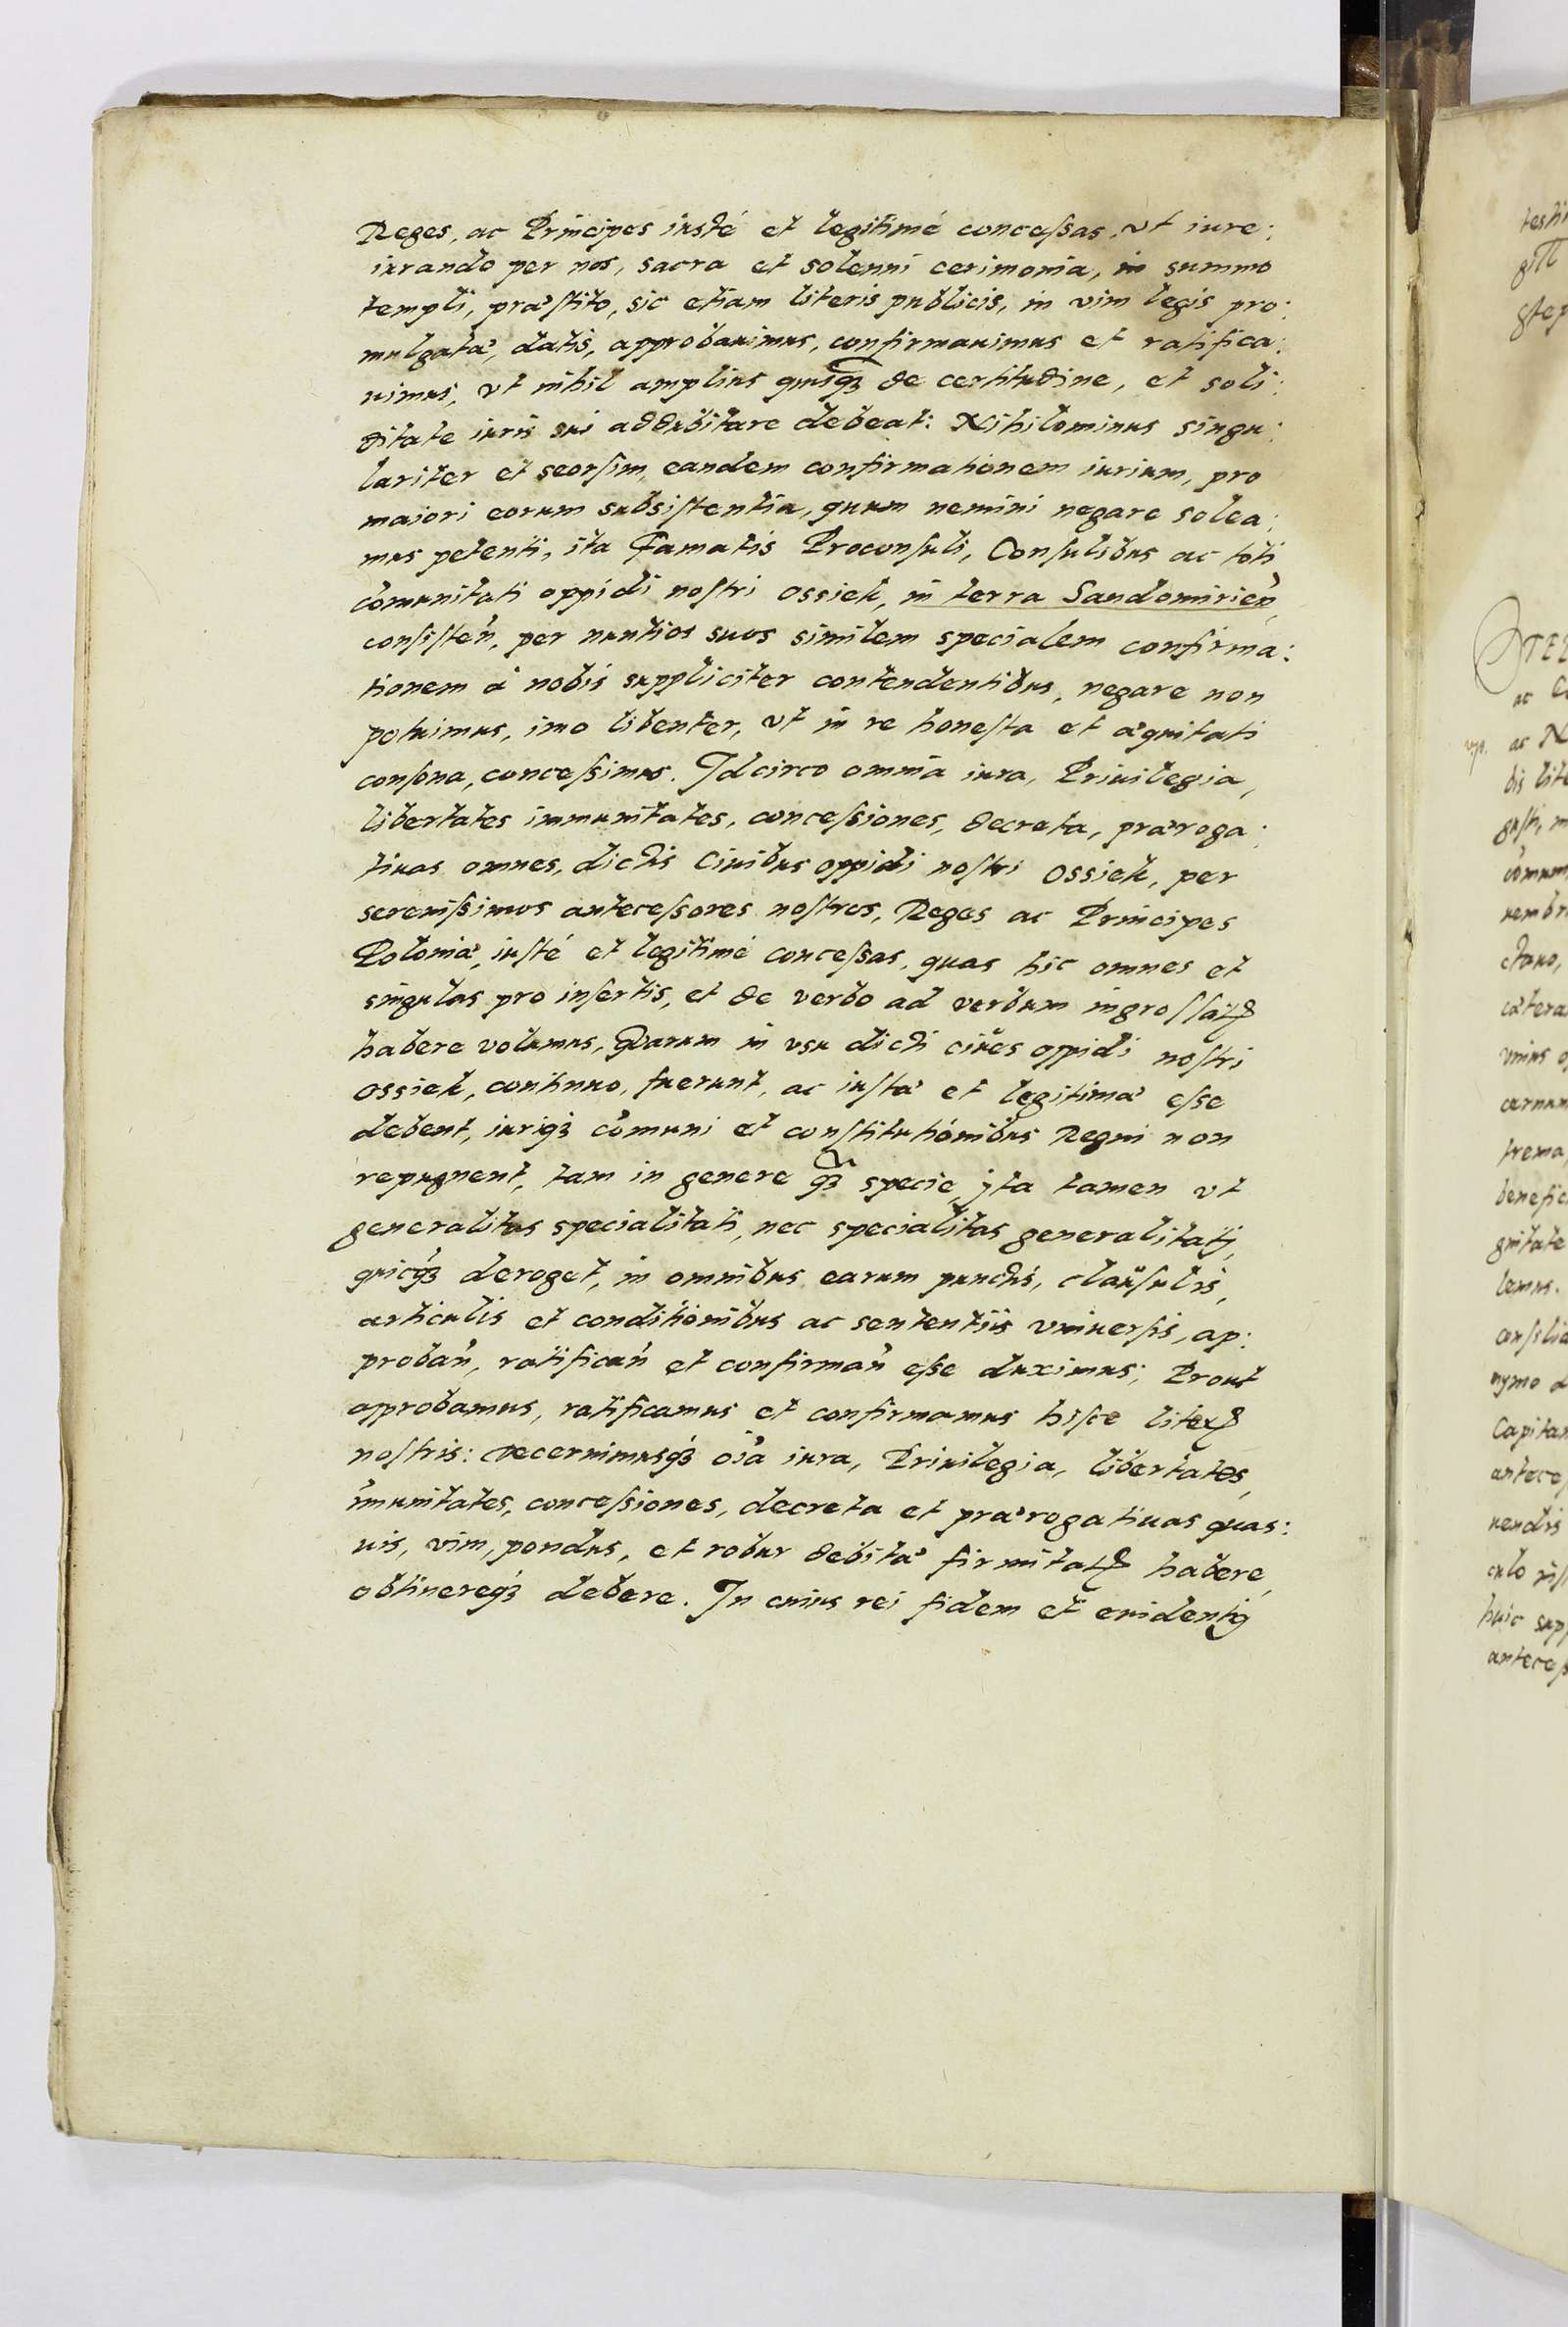 Reges, ac Principes iusté et legitimé concessas, vt iure:
iurando per nos, sacra et solenni cerimonia, in summo
templi, præstito, sic etiam literis publicis, in vim legis pro:
mulgatæ, datis, approbauimus, confirmauimus et ratifica:
uimus, vt nihil amplius quisq̃ꝫ de certitudine, et soli:
ditate iuris sui addubitare debeat: Nihilominus singu:
lariter et seorsim, eandem confirmationem iurium, pro
maiori eorum subsistentia, quum nemini negare solea:
mus petenti, ita Famatis Proconsuli, Consulibus ac toti
cõmunitati oppidi nostri Ossiek, in terra Sandomirień
consisteń, per nuntios suos similem specialem confirma:
tionem à nobis suppliciter contendentibus, negare non
potuimus, imo libenter, vt in re honesta et æquitati
consona, concessimus. Idcirco omnia iura, Priuilegia,
libertates immunitates, concessiones, decreta, præroga:
tiuas omnes, dictis Ciuibus oppidi nostri Ossiek, per
serenissimos antecessores nostros, Reges ac Principes
Poloniæ, iusté et legitimé concessas, quas hic omnes et
singulas pro insertis, et de verbo ad verbum ingrossatꝭ
habere volumus, Quarum in vsu dicti ciues oppidi nostri
Ossiek, continuo, fuerunt, ac iustæ et legitimæ esse
debent, iuriqꝫ cõmuni et constitutionibus Regni non
repugnent, tam in genere q̃ꝫ specie, yta tamen vt
generalitas specialitati, nec specialitas generalitatj,
quicq̃ꝫ deroget, in omnibus earum punctis, clausulis,
articulis et conditionibus ac sententiis vniuersis, ap:
probań, ratificań et confirmań esse duximus; Prout
approbamus, ratificamus et confirmamus hisce literꝭ
nostris: decernimusqꝫ oĩa iura, Priuilegia, libertates,
ĩmunitates, concessiones, decreta et prærogatiuas quas:
uis, vim, pondus, et robur debitæ firmitatꝭ habere,
obtinereqꝫ debere. In cuius rei fidem et euidentiã